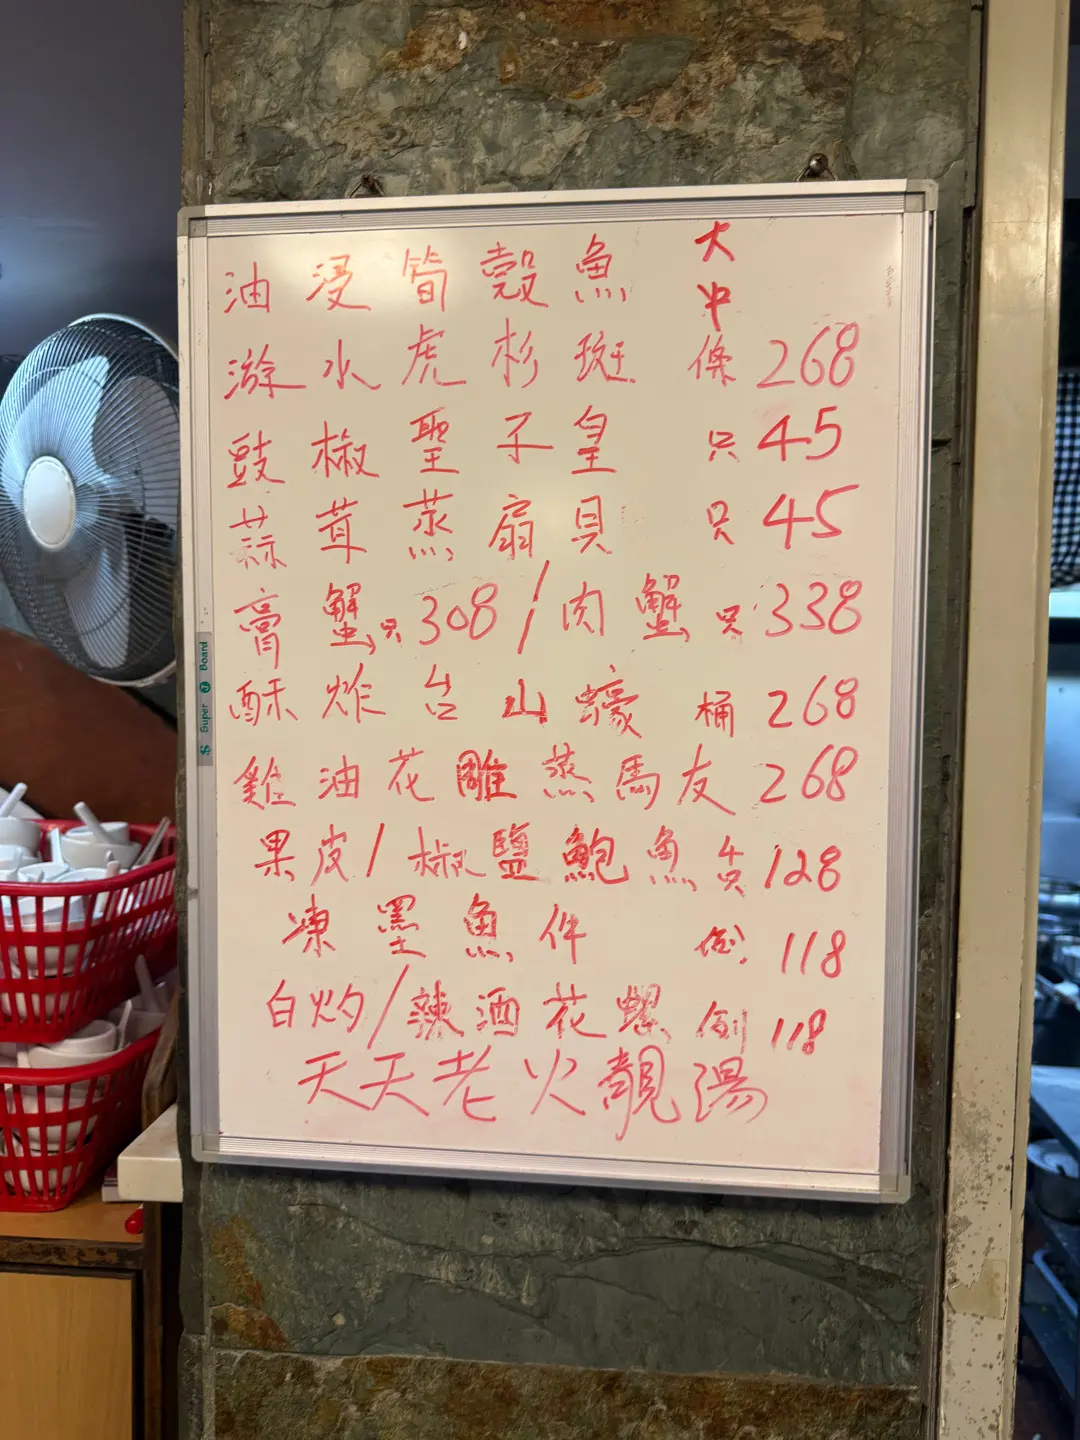 油浸筍殼魚 大
中
游水虎杉斑 條 268
豉椒聖子皇 只 45
蒜茸蒸扇貝 只 45
膏蟹只308/肉蟹只338
酥炸台山蠔 桶 268
雞油花雕蒸馬友 268
果皮/椒鹽鮑魚 4只 128
凍墨魚件 例 118
白灼/辣酒花螺 例 118
天天老火靚湯
Super Board